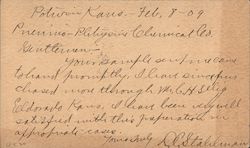 Potwin Kans. Feb. 8-09
Pneumo-Phthysine Chemical Co.
Gentlemen
Your sample sent me came
to hand promptly, I have since pur
chased more through W. C. H.
Eldorado Kans. I have been very well
satisfied with this preparation in
appropriate cases.
Yours truly